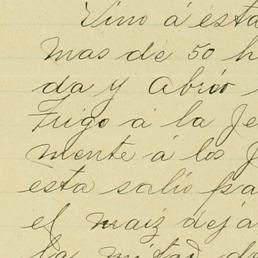 Vino á esta
mas de 50 h
da y abrió
Trigo á la Je
mente á los J
esta salio pa
el maiz dejá
la mitad de